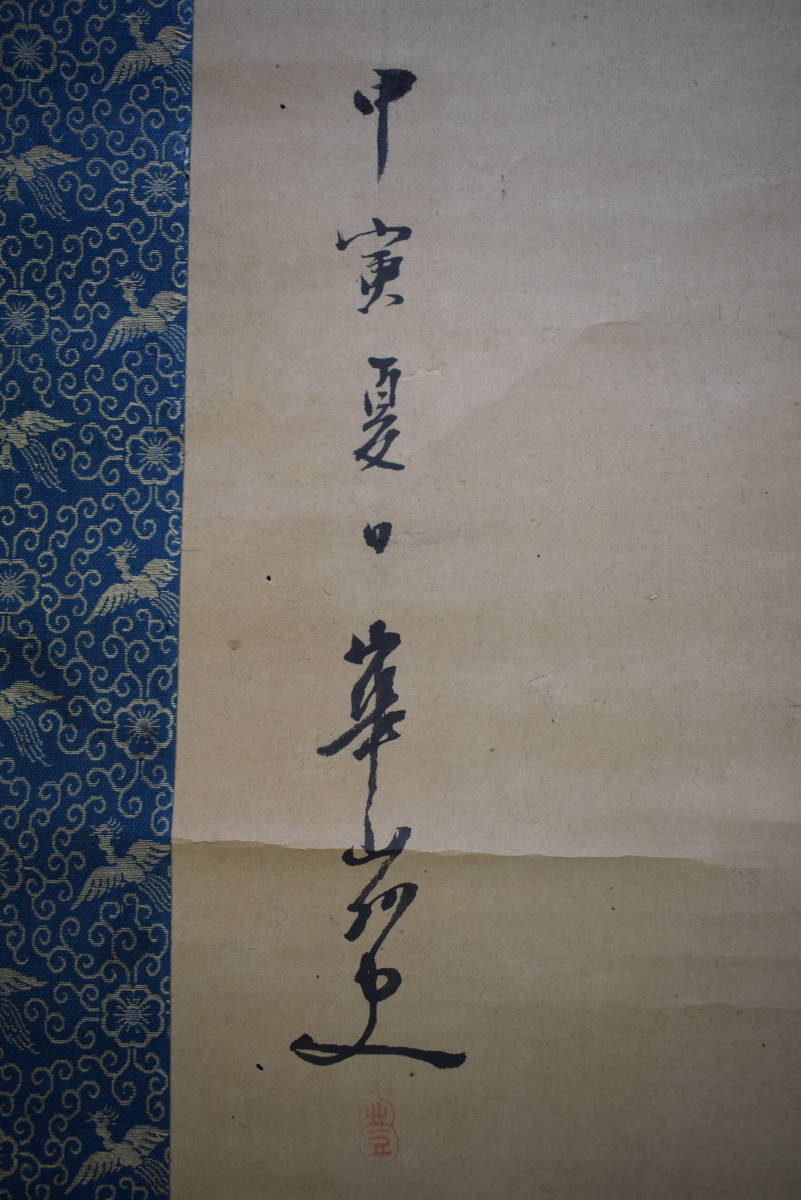 甲寅夏日華山外史